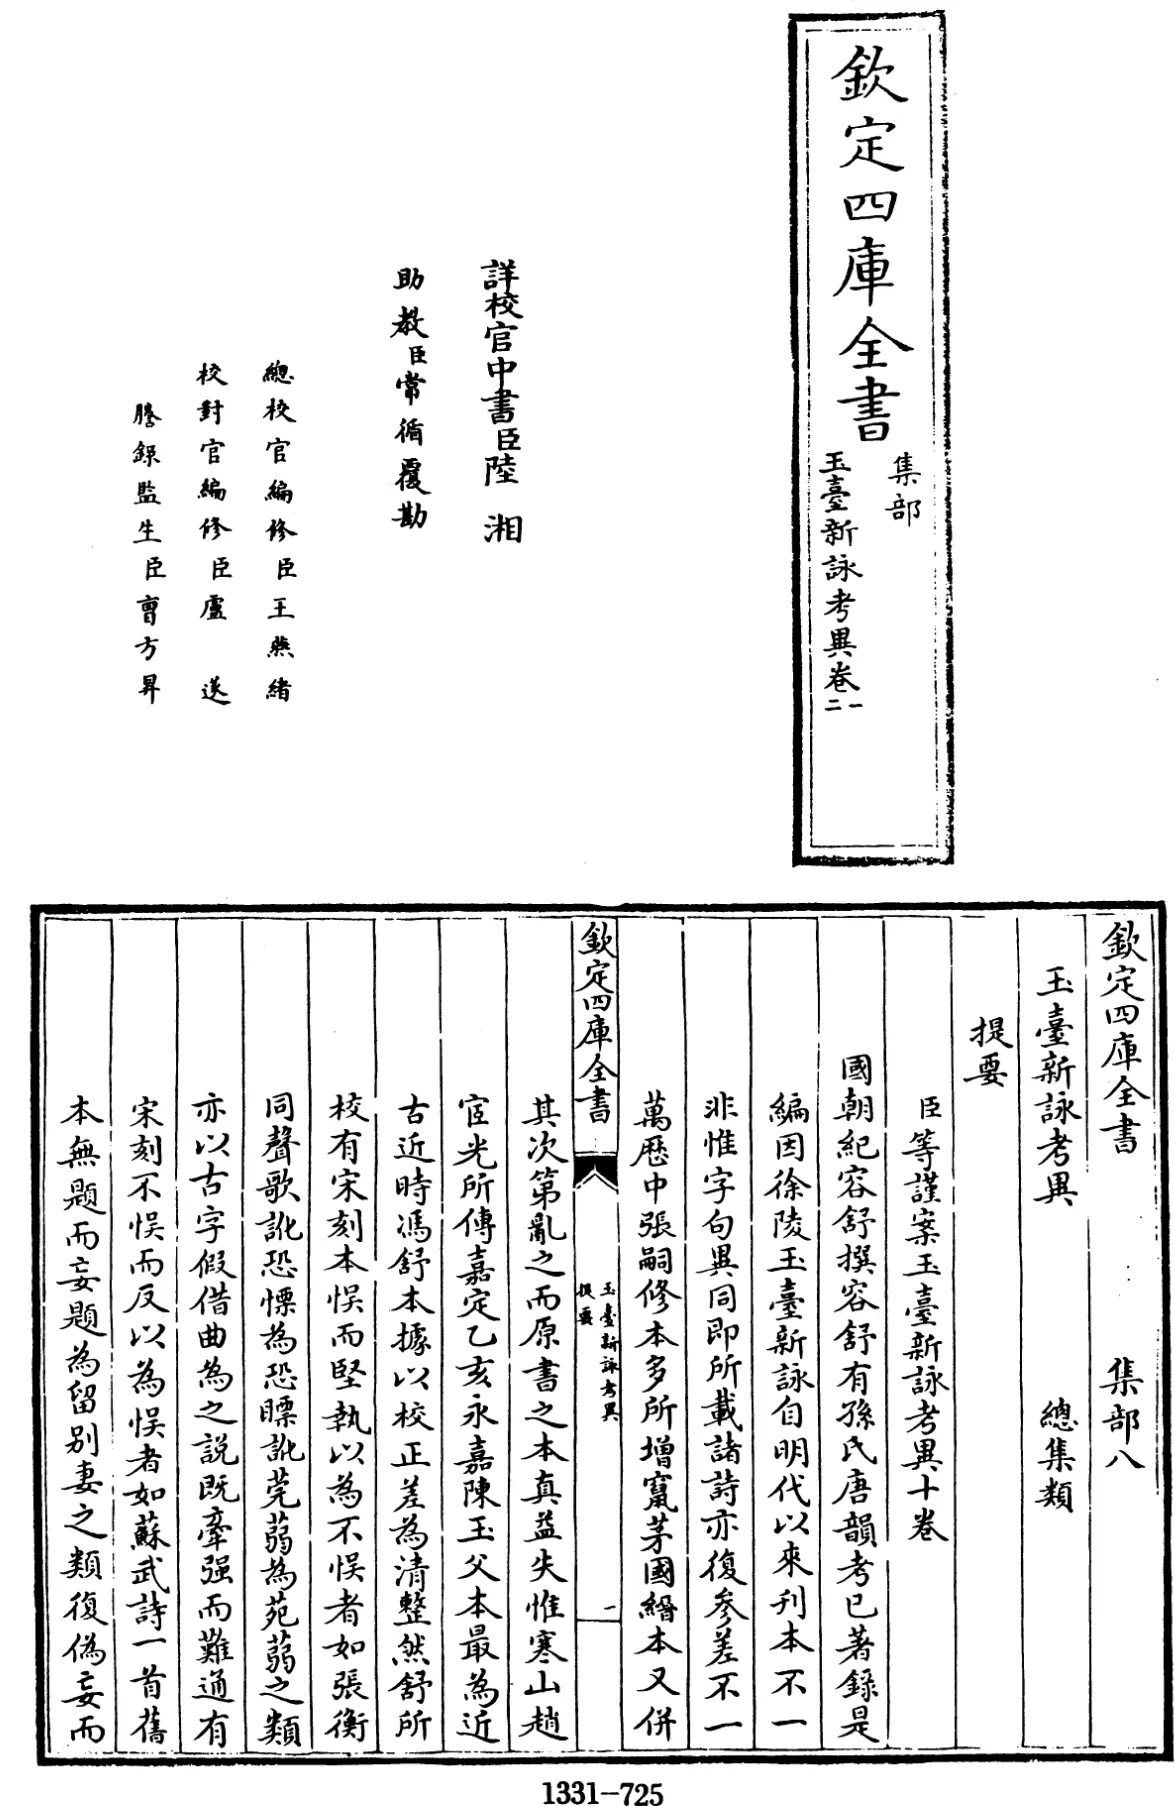 欽定四庫全書
集部
玉臺新詠考異卷一二
詳校官中書臣陸湘
助教臣常循覆勘
總校官編修臣王燕緒
校對官編修臣盧遂
謄錄監生臣曹方昇
欽定四庫全書 集部八
玉臺新詠考異 總集類
提要
臣等謹案玉臺新詠考異十卷
國朝紀容舒撰容舒有孫氏唐韻考已著錄是
編因徐陵玉臺新詠自明代以來刋本不一
非惟字句異同即所載諸詩亦復參差不一
萬歷中張嗣修本多所增竄茅國縉本又併
欽定四庫全書
玉臺新詠考異
提要
一
其次第亂之而原書之本真益失惟寒山趙
宧光所傳嘉定乙亥永嘉陳玉父本最為近
古近時馮舒本據以校正差為清整然舒所
校有宋刻本悮而堅執以為不悮者如張衡
同聲歌訛恐慄為恐瞟訛莞蒻為苑蒻之類
亦以古字假借曲為之說既牽强而難通有
宋刻不悮而反以為悮者如蘇武詩一首舊
本無題而妄題為留别妻之類復偽妄而
1331-725